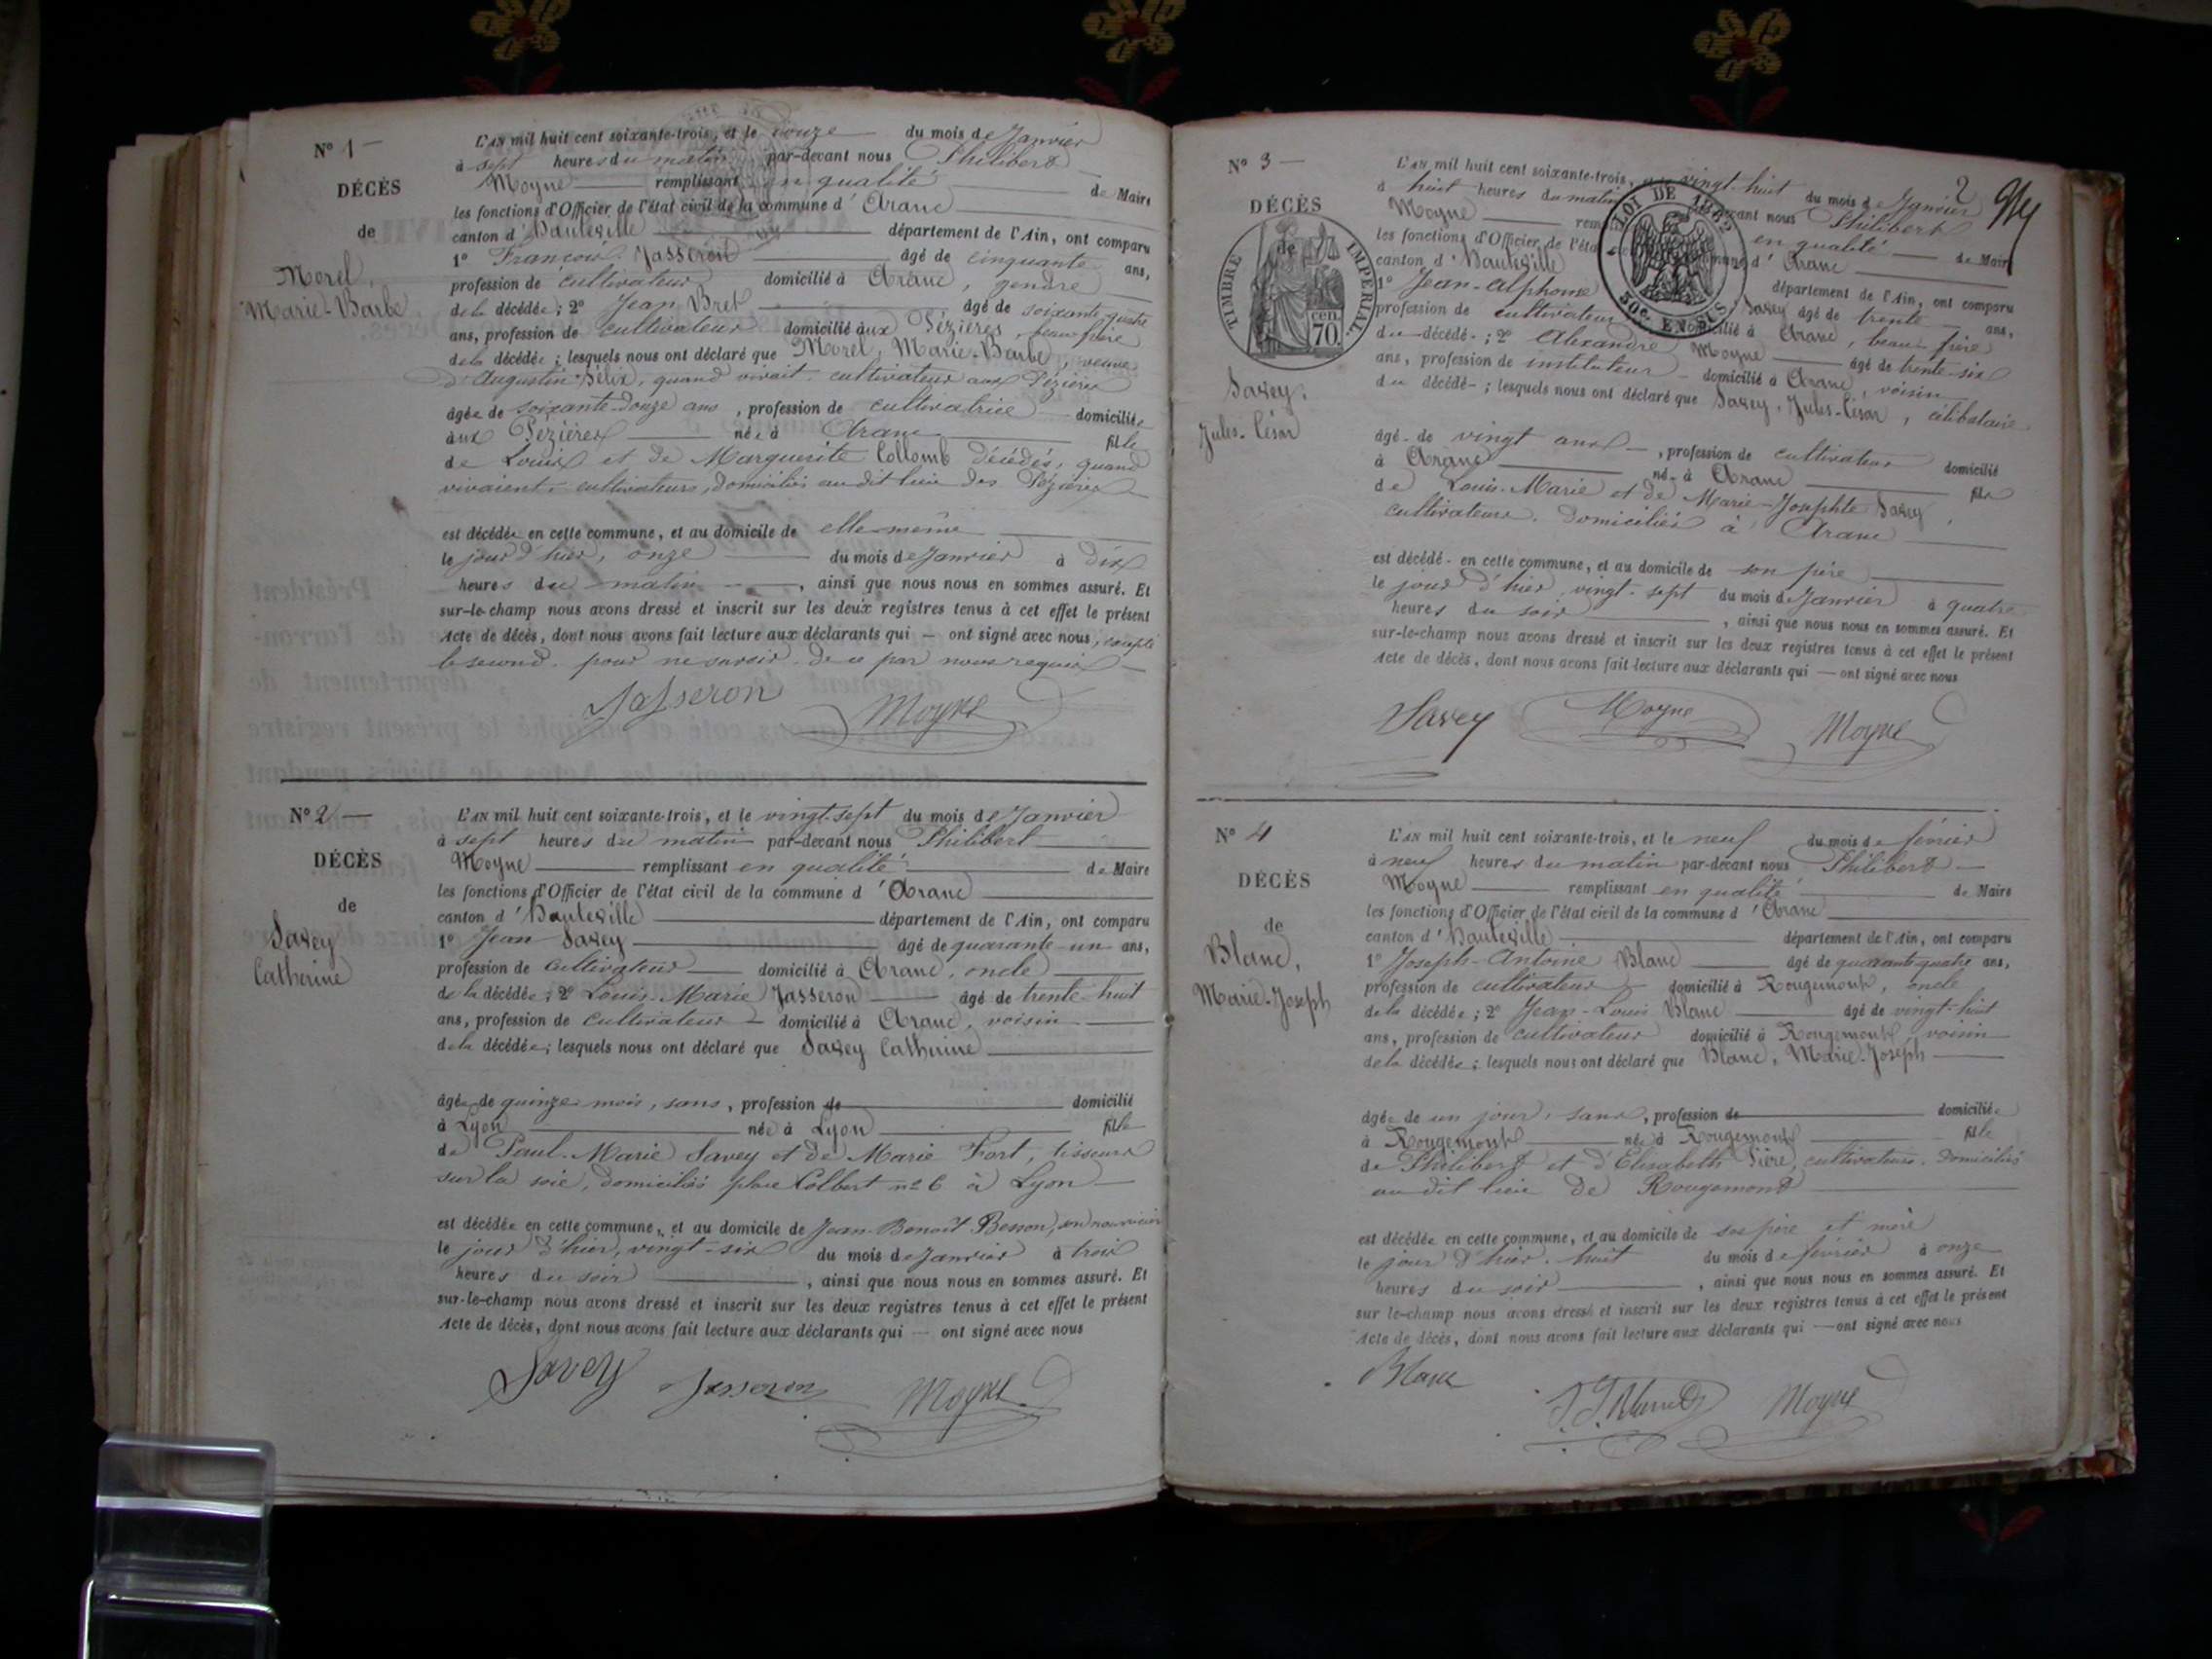 N° 1 —
DÉCÈS
de
Morel,
Marie-Barbe
L'AN mil huit cent soixante-trois, et le douze du mois de Janvier
à sept heures du matin par-devant nous Philibert
Moyne remplissant en qualité de Maire
les fonctions d'Officier de l'état civil de la commune d'Aranc
canton d'Hauteville département de l'Ain, ont comparu
1° François Jasseron âgé de cinquante ans,
profession de cultivateur domicilié à Aranc, gendre
de la décédée ; 2° Jean Bret âgé de soixante-quatre
ans, profession de cultivateur domicilié aux Pézières, beau-frère
de la décédée ; lesquels nous ont déclaré que Morel, Marie-Barbe, veuve
d'Augustin Félix, quand vivait, cultivateur aux Pézières
âgée de soixante-douze ans, profession de cultivatrice domiciliée
aux Pézières née à Aranc fille
de Louis et de Marguerite Collomb décédés, quand
vivaient, cultivateurs, domiciliés au dit lieu des Pézières
est décédée en cette commune, et au domicile de elle-même
le jour d'hier, onze du mois de Janvier à dix
heures du matin, ainsi que nous nous en sommes assuré. Et
sur-le-champ nous avons dressé et inscrit sur les deux registres tenus à cet effet le présent
Acte de décès, dont nous avons fait lecture aux déclarants qui — ont signé avec nous, excepté
le second, pour ne savoir, de ce par nous requis
Jasseron Moyne
N° 2 —
DÉCÈS
de
Savey
Catherine
L'AN mil huit cent soixante-trois, et le vingt-sept du mois de Janvier
à sept heures du matin par-devant nous Philibert
Moyne remplissant en qualité de Maire
les fonctions d'Officier de l'état civil de la commune d'Aranc
canton d'Hauteville département de l'Ain, ont comparu
1° Jean Savey âgé de quarante-un ans,
profession de cultivateur domicilié à Aranc, oncle
de la décédée ; 2° Louis-Marie Jasseron âgé de trente-huit
ans, profession de cultivateur domicilié à Aranc, voisin
de la décédée ; lesquels nous ont déclaré que Savey Catherine
âgée de quinze mois, sans, profession de domicilié
à Lyon née à Lyon fille
de Paul-Marie Savey et de Marie Fort, tisseurs
sur la soie, domiciliés place Colbert n° 6 à Lyon
est décédée en cette commune, et au domicile de Jean-Benoît Besson, son nourricier
le jour d'hier, vingt-six du mois de Janvier à trois
heures du soir, ainsi que nous nous en sommes assuré. Et
sur-le-champ nous avons dressé et inscrit sur les deux registres tenus à cet effet le présent
Acte de décès, dont nous avons fait lecture aux déclarants qui — ont signé avec nous
Savey Jasseron Moyne
2
N° 3 —
DÉCÈS
de
TIMBRE IMPÉRIAL
70 cen.
Savey,
Jules-César
LOI DE 1862
50c. EN SUS
L'AN mil huit cent soixante-trois, et le vingt-huit du mois de Janvier
à huit heures du matin par-devant nous Philibert
Moyne remplissant en qualité de Maire
les fonctions d'Officier de l'état civil de la commune d'Aranc
canton d'Hauteville département de l'Ain, ont comparu
1° Jean-Alphonse Savey âgé de trente ans,
profession de cultivateur domicilié à Aranc, beau-frère
du décédé ; 2° Alexandre Moyne âgé de trente-six
ans, profession de instituteur domicilié à Aranc, voisin
du décédé ; lesquels nous ont déclaré que Savey, Jules-César, célibataire
âgé de vingt ans, profession de cultivateur domicilié
à Aranc né à Aranc fils
de Louis-Marie et de Marie-Josephte Savey,
cultivateurs, domiciliés à Aranc
est décédé en cette commune, et au domicile de son père
le jour d'hier, vingt-sept du mois de Janvier à quatre
heures du soir, ainsi que nous nous en sommes assuré. Et
sur-le-champ nous avons dressé et inscrit sur les deux registres tenus à cet effet le présent
Acte de décès, dont nous avons fait lecture aux déclarants qui — ont signé avec nous
Savey Moyne Moyne
N° 4
DÉCÈS
de
Blanc,
Marie-Joseph
L'AN mil huit cent soixante-trois, et le neuf du mois de février
à neuf heures du matin par-devant nous Philibert
Moyne remplissant en qualité de Maire
les fonctions d'Officier de l'état civil de la commune d'Aranc
canton d'Hauteville département de l'Ain, ont comparu
1° Joseph-Antoine Blanc âgé de quarante-quatre ans,
profession de cultivateur domicilié à Rougemont, oncle
de la décédée ; 2° Jean-Louis Blanc âgé de vingt-huit
ans, profession de cultivateur domicilié à Rougemont voisin
de la décédée ; lesquels nous ont déclaré que Blanc, Marie-Joseph
âgée de un jour, sans, profession de domiciliée
à Rougemont née à Rougemont fille
de Philibert et d'Elisabeth Pière, cultivateurs, domiciliés
au dit lieu de Rougemont
est décédée en cette commune, et au domicile de ses père et mère
le jour d'hier, huit du mois de février à onze
heures du soir, ainsi que nous nous en sommes assuré. Et
sur-le-champ nous avons dressé et inscrit sur les deux registres tenus à cet effet le présent
Acte de décès, dont nous avons fait lecture aux déclarants qui — ont signé avec nous
Blanc Moyne